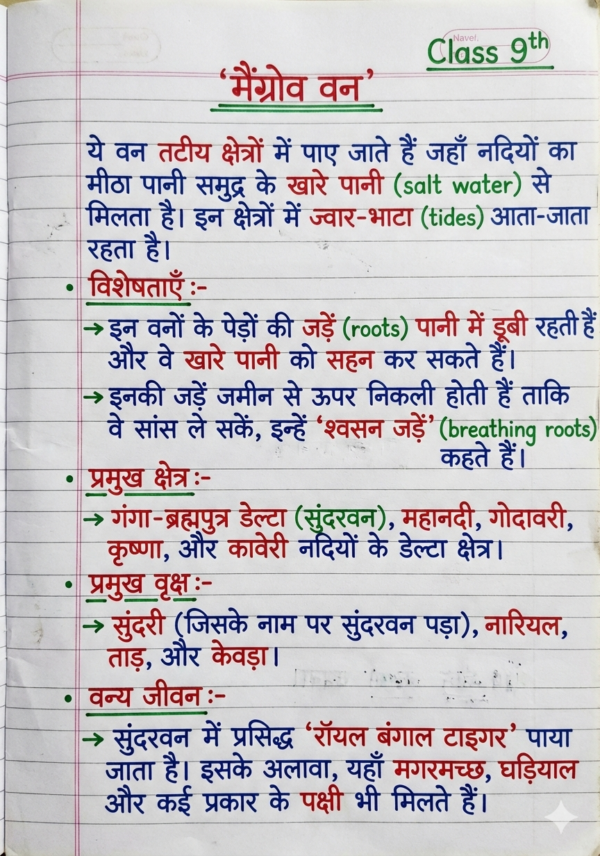 Class 9th
'मैंग्रोव वन'
ये वन तटीय क्षेत्रों में पाए जाते हैं जहाँ नदियों का
मीठा पानी समुद्र के खारे पानी (salt water) से
मिलता है। इन क्षेत्रों में ज्वार-भाटा (tides) आता-जाता
रहता है।
• विशेषताएँ :-
→ इन वनों के पेड़ों की जड़ें (roots) पानी में डूबी रहती हैं
और वे खारे पानी को सहन कर सकते हैं।
→ इनकी जड़ें जमीन से ऊपर निकली होती हैं ताकि
वे सांस ले सकें, इन्हें 'श्वसन जड़ें' (breathing roots)
कहते हैं।
• प्रमुख क्षेत्र :-
→ गंगा-ब्रह्मपुत्र डेल्टा (सुंदरवन), महानदी, गोदावरी,
कृष्णा, और कावेरी नदियों के डेल्टा क्षेत्र।
• प्रमुख वृक्ष :-
→ सुंदरी (जिसके नाम पर सुंदरवन पड़ा), नारियल,
ताड़, और केवड़ा।
• वन्य जीवन :-
→ सुंदरवन में प्रसिद्ध 'रॉयल बंगाल टाइगर' पाया
जाता है। इसके अलावा, यहाँ मगरमच्छ, घड़ियाल
और कई प्रकार के पक्षी भी मिलते हैं।